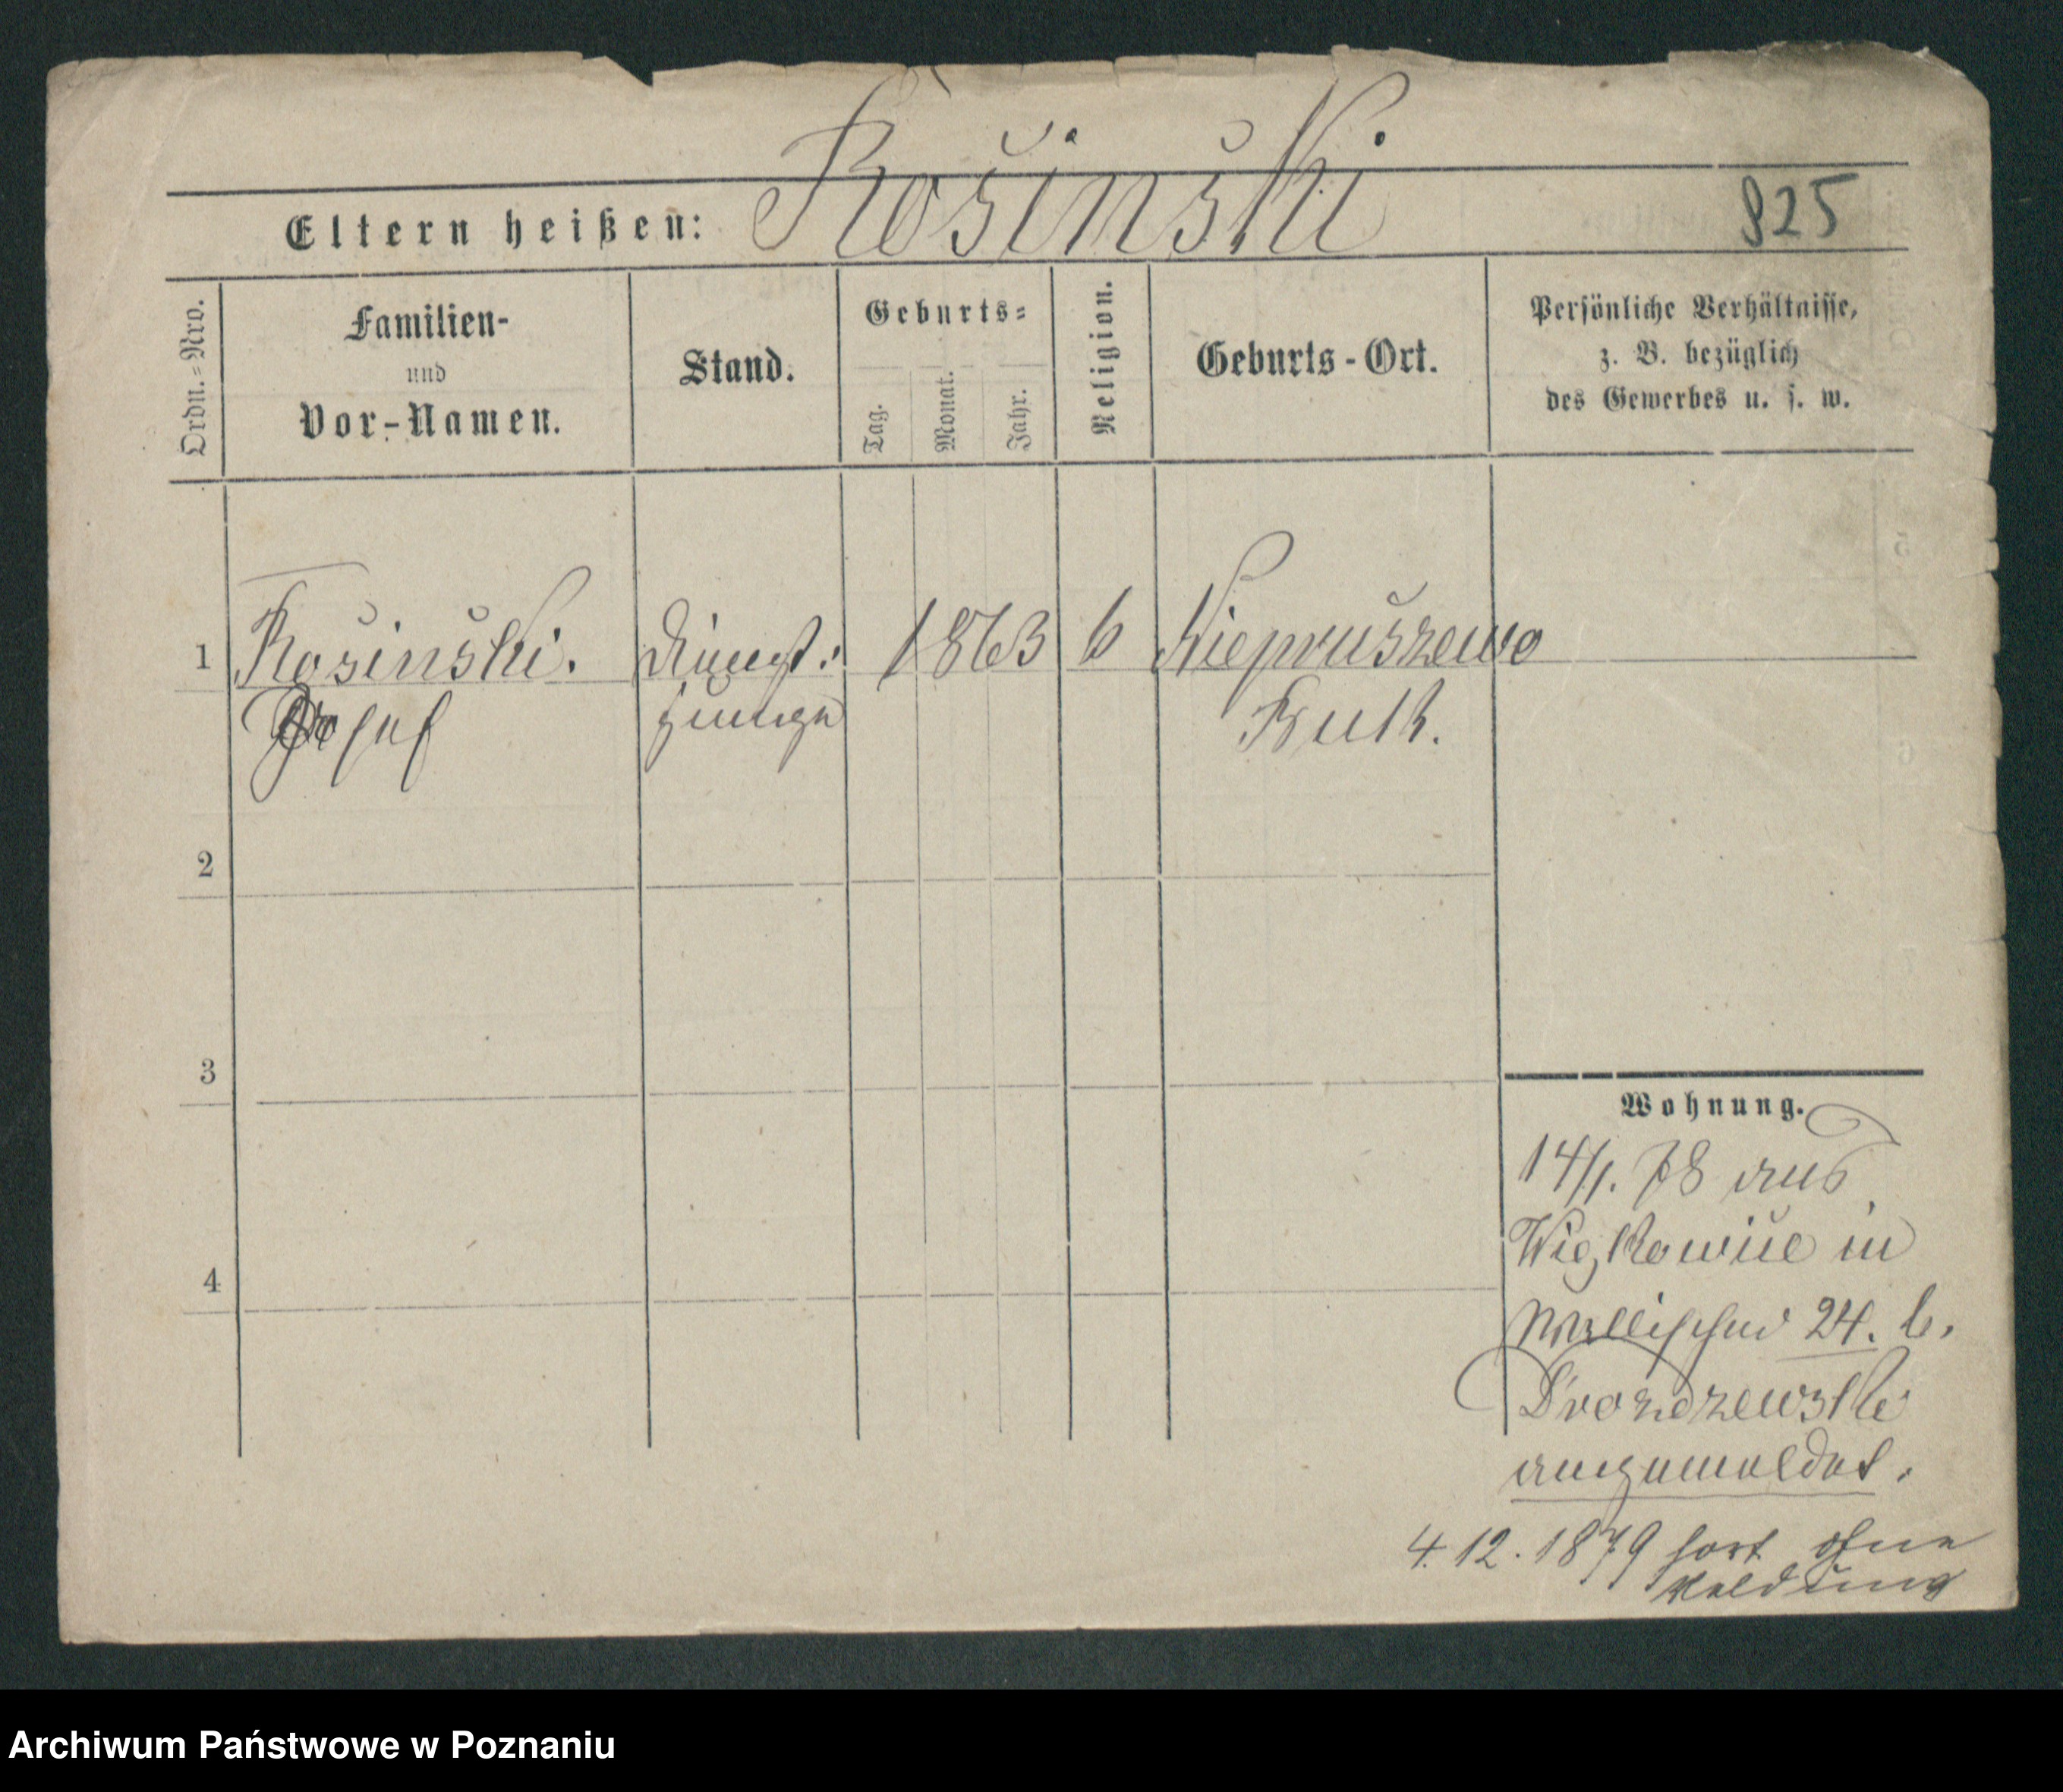 Rośinśki
825
Eltern heißen:
Ordn.=Nro.
Familien-
und
Vor-Namen.
Stand.
Geburts=
Tag.
Monat.
Jahr.
Religion.
Geburts-Ort.
Persönliche Verhältnisse,
z. B. bezüglich
des Gewerbes u. s. w.
1 Rośinśki. Dienst= 1863 k Niepruszewo
Josef junge Buk.
2
3
4
Wohnung.
14/1. 78 aus
in
Wallischei 24. b.
Drozdzewski
angemeldet.
4. 12. 1879 fort ohne
Meldung
Archiwum Państwowe w Poznaniu